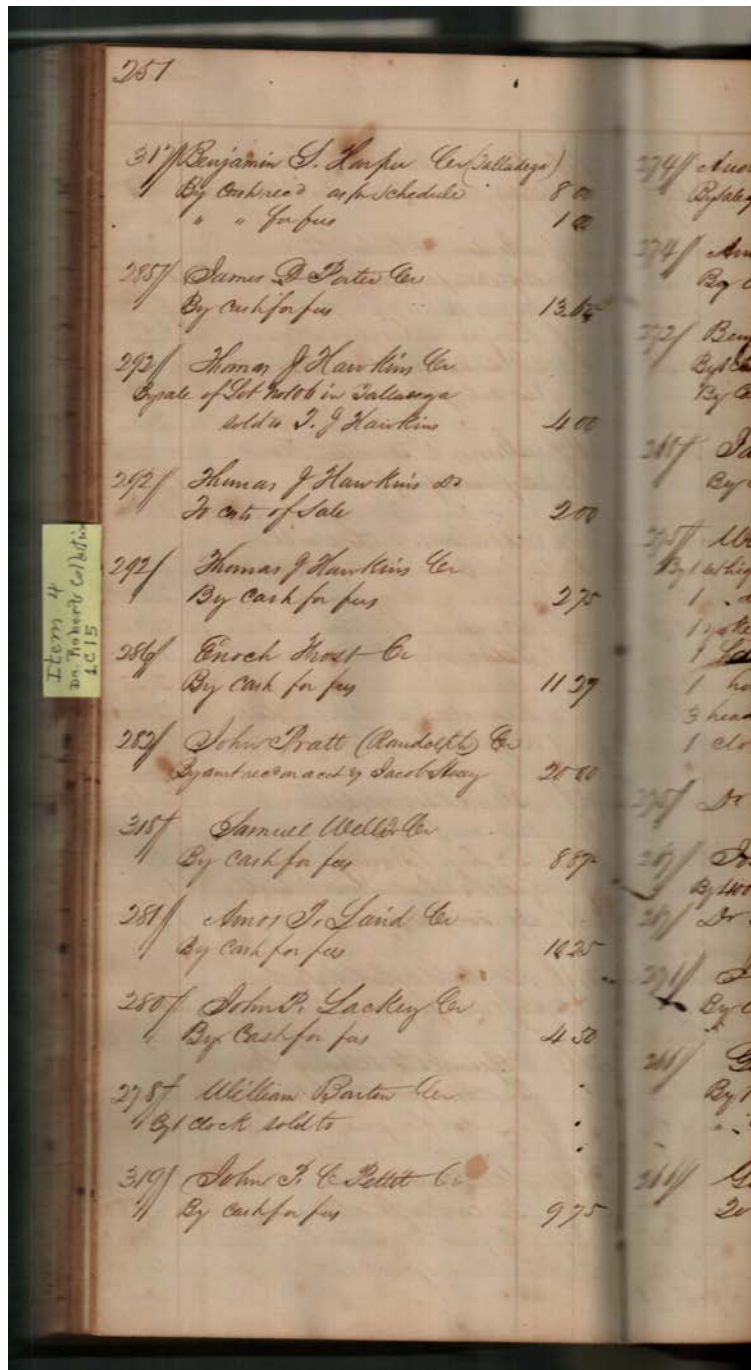 251
317 Benjamin S. Harper Cr (Talladega)
By Cash rec'd as per Schedule 8 00
" " for fees 1 00
285 James D Porter Cr
By Cash for fees 13.65
292 Thomas J Hawkins Cr
By sale of Lot No 106 in Talladega
sold to T. J Hawkins 4 00
292 Thomas J Hawkins Dr
To costs of Sale 2 00
292 Thomas J Hawkins Cr
By Cash for fees 2 75
286 Enoch Frost Cr
By Cash for fees 11 27
282 John Pratt (Randolph) Cr
By amt rec on acct of Jacob 20 00
318 Samuel Wells Cr
By Cash for fees 8 87
281 Amos T. Laird Cr
By Cash for fees 10 25
280 John P. Lackey Cr
By Cash for fees 4 50
278 William Barton Cr
By 1 clock sold to
319 John P. C Pettit Cr
By Cash for fees 9 75
Item 4
Dr. Roberts Collection
LC 15
274
By Sale
274
By
272
By
By
268
By
275
By 1
1
1 yoke
1
1
3 head
1 clo
275 Dr
267
By 400
267 Dr
271
By
268
By 1
266
20